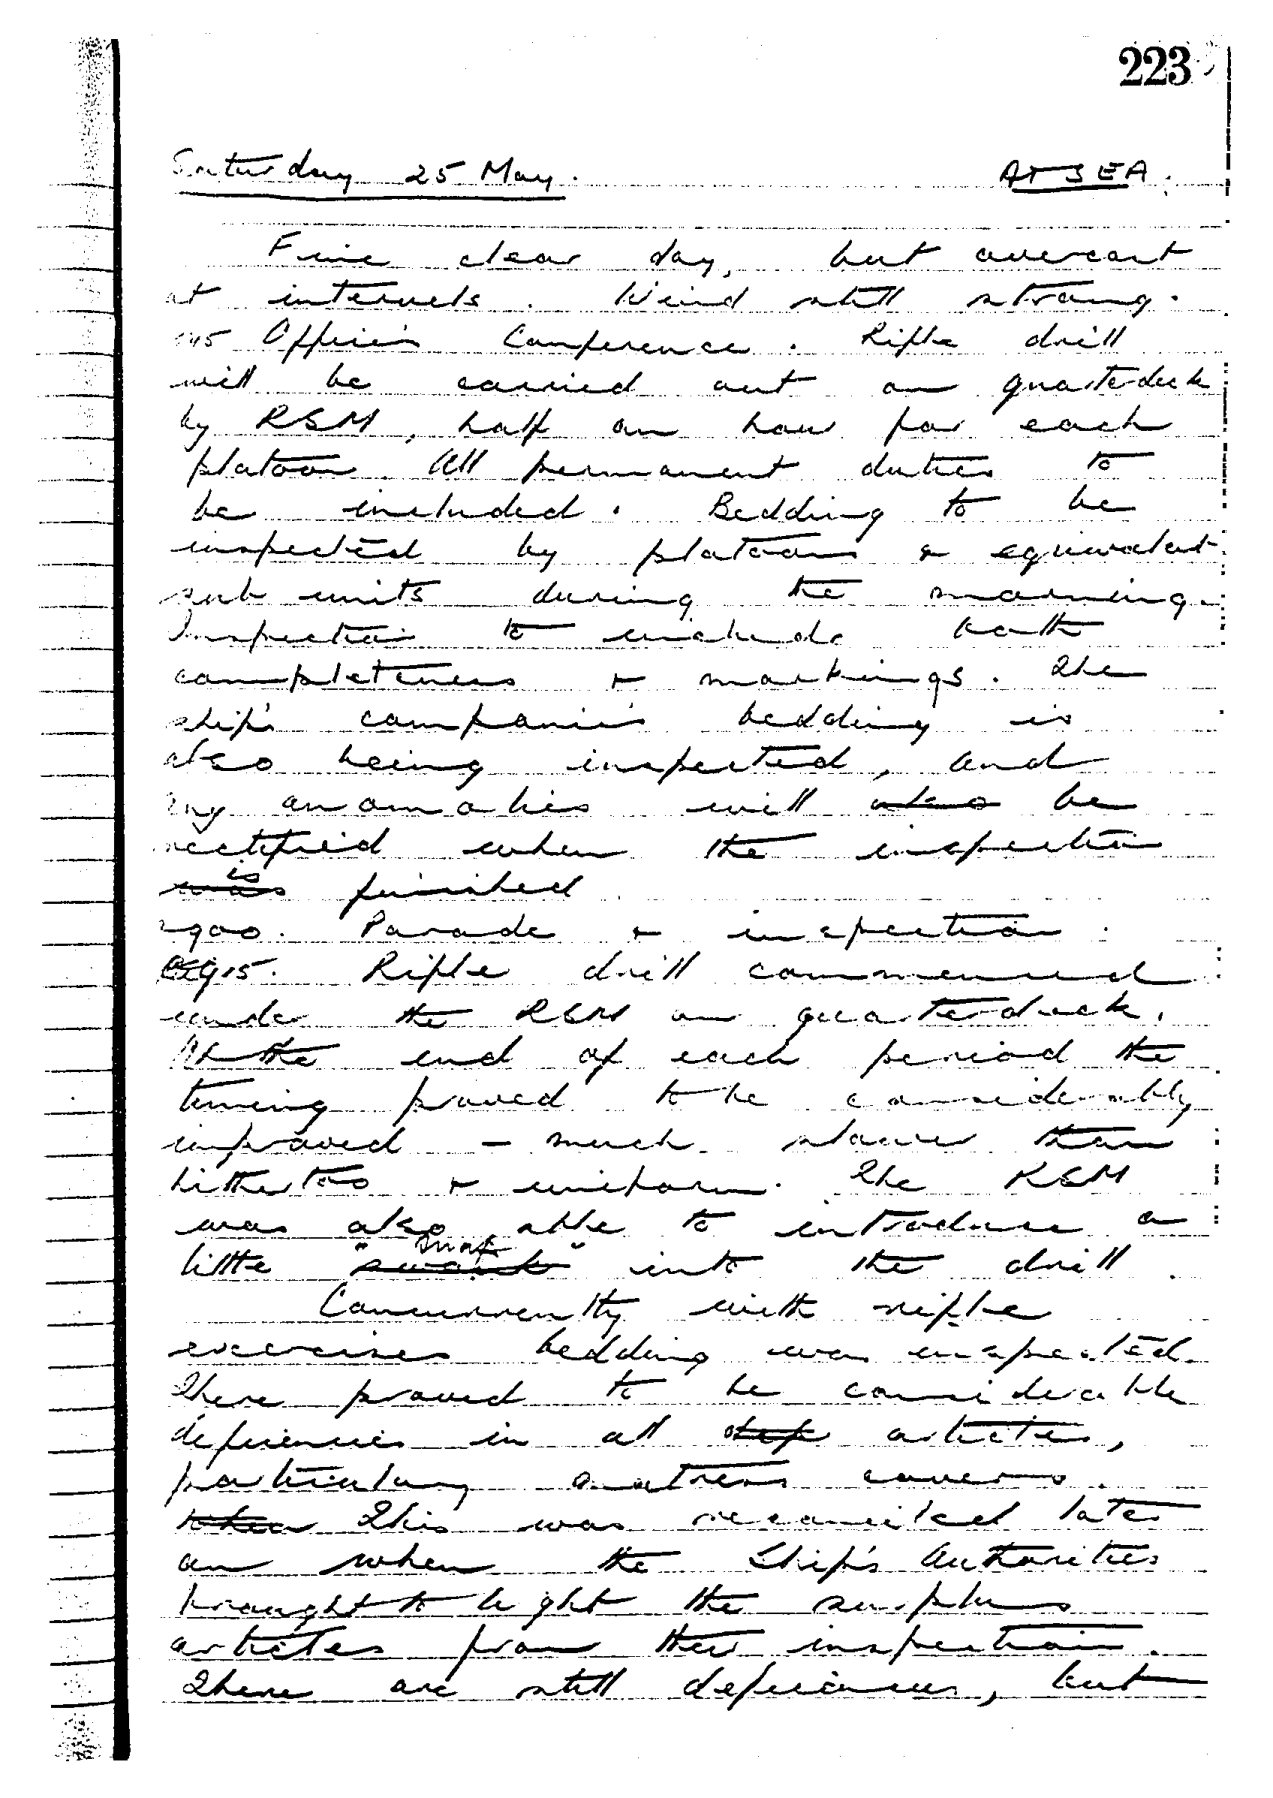 223
Saturday 25 May.
AT SEA.
Fine clear day, but overcast
at intervals. Wind still strong.
Officer's Conference. Rifle drill
will be carried out on quarterdeck
by RSM, half an hour for each
platoon. All permanent duties to
be included. Bedding to be
inspected by platoons & equivalent
sub units during the morning.
Inspection to include both
completeness & markings. The
ship's companie's bedding is
also being inspected, and
any anomalies will also be
rectified when the inspection
was is finished
0900. Parade & inspection.
0915. Rifle drill commenced
under the RSM on quarterdeck.
At the end of each period the
timing proved to be considerably
improved - much slower than
hitherto & uniform. The RSM
was also able to introduce a
little "swank snap" into the drill.
Concurrently with rifle
exercises bedding was inspected.
There proved to be considerable
deficiencies in all articles,
particulary matress covers.
when This was reconciled later
on when the Ship's Authorities
brought to light the surplus
articles from their inspection.
There are still deficiencies, but